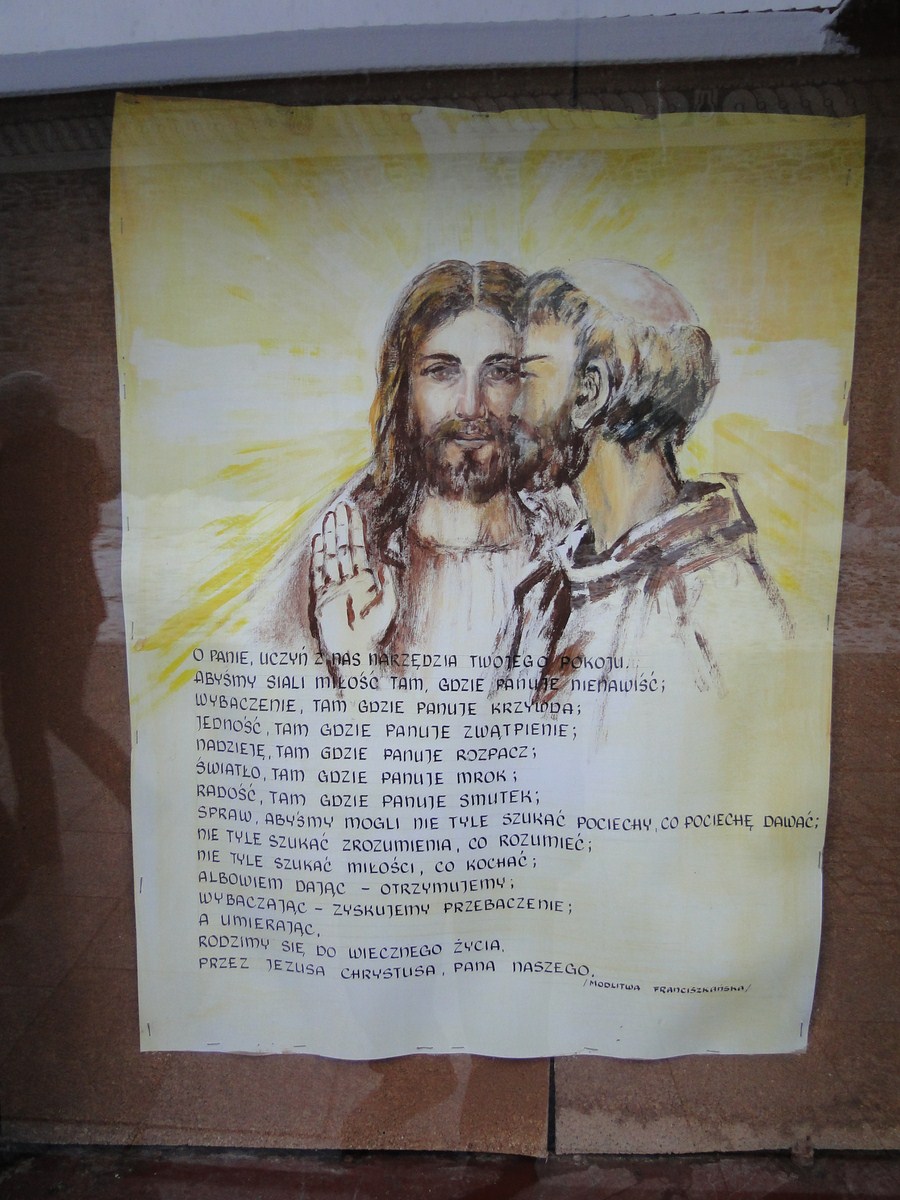 O PANIE, UCZYŃ Z NAS NARZĘDZIA TWOJEGO POKOJU.
ABYŚMY SIALI MIŁOŚĆ TAM, GDZIE PANUJE NIENAWIŚĆ;
WYBACZENIE, TAM GDZIE PANUJE KRZYWDA;
JEDNOŚĆ, TAM GDZIE PANUJE ZWĄTPIENIE;
NADZIEJĘ, TAM GDZIE PANUJE ROZPACZ;
ŚWIATŁO, TAM GDZIE PANUJE MROK;
RADOŚĆ, TAM GDZIE PANUJE SMUTEK;
SPRAW, ABYŚMY MOGLI NIE TYLE SZUKAĆ POCIECHY, CO POCIECHĘ DAWAĆ;
NIE TYLE SZUKAĆ ZROZUMIENIA, CO ROZUMIEĆ;
NIE TYLE SZUKAĆ MIŁOŚCI, CO KOCHAĆ;
ALBOWIEM DAJĄC – OTRZYMUJEMY;
WYBACZAJĄC – ZYSKUJEMY PRZEBACZENIE;
A UMIERAJĄC,
RODZIMY SIĘ DO WIECZNEGO ŻYCIA.
PRZEZ JEZUSA CHRYSTUSA, PANA NASZEGO.
/MODLITWA FRANCISZKAŃSKA/